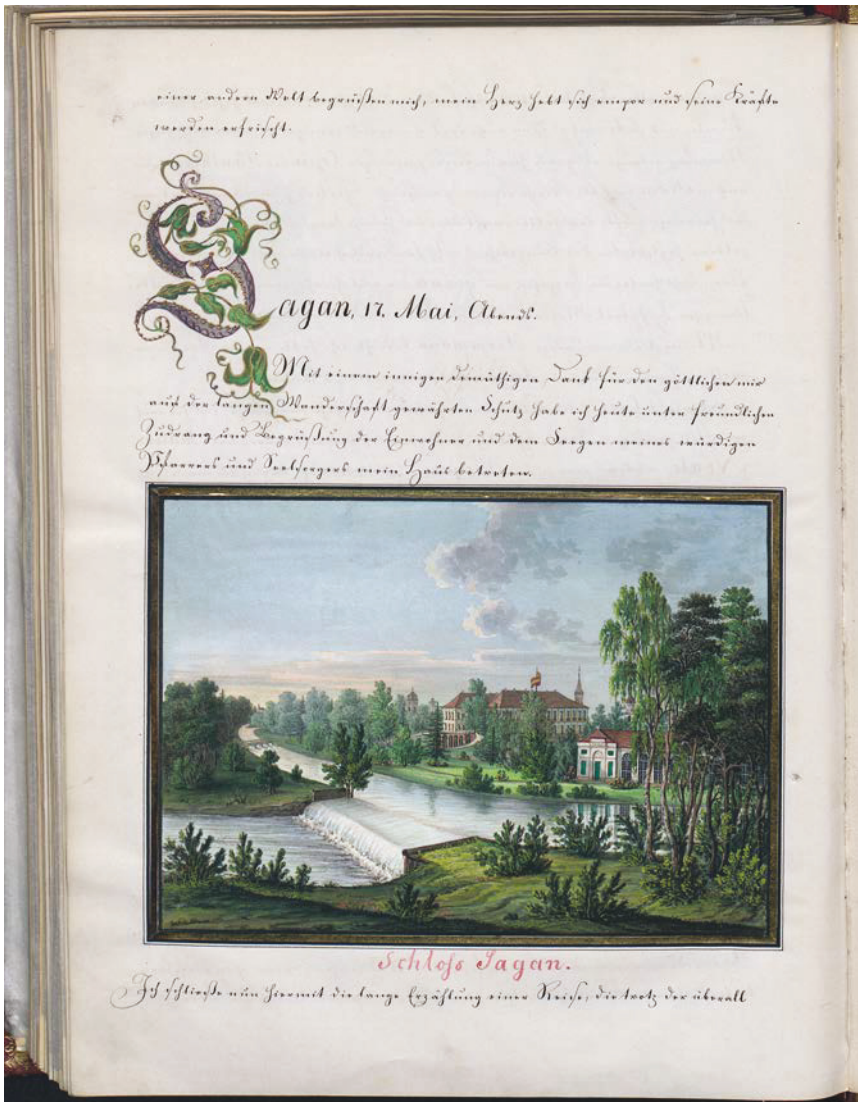 einer andern Welt begrüßen mich, mein Herz hebt sich empor und seine Kräfte
werden erfrischt.
Sagan, 17. Mai, Abends.
Mit einem innigen demüthigen Dank für den göttlichen mir
auf der langen Wanderschaft gewährten Schutz habe ich heute unter freundlichem
Zudrang und Begrüßung der Einwohner und dem Seegen meines würdigen
Pfarrers und Seelsorgers mein Haus betreten.
Schloss Sagan.
Ich schließe nun hiermit die lange Erzählung einer Reise, die trotz der überall